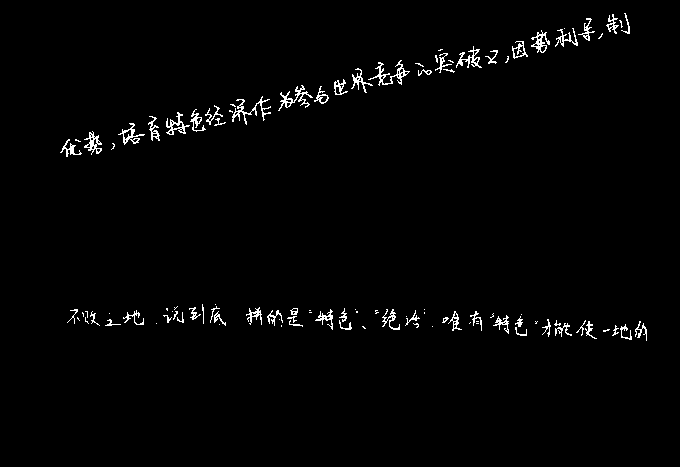 优势,培育特色经济作为参与世界竞争的突破口,因势利导,制
不败之地.说到底 拼的是"特色"、"绝活".唯有"特色"才能使一地的